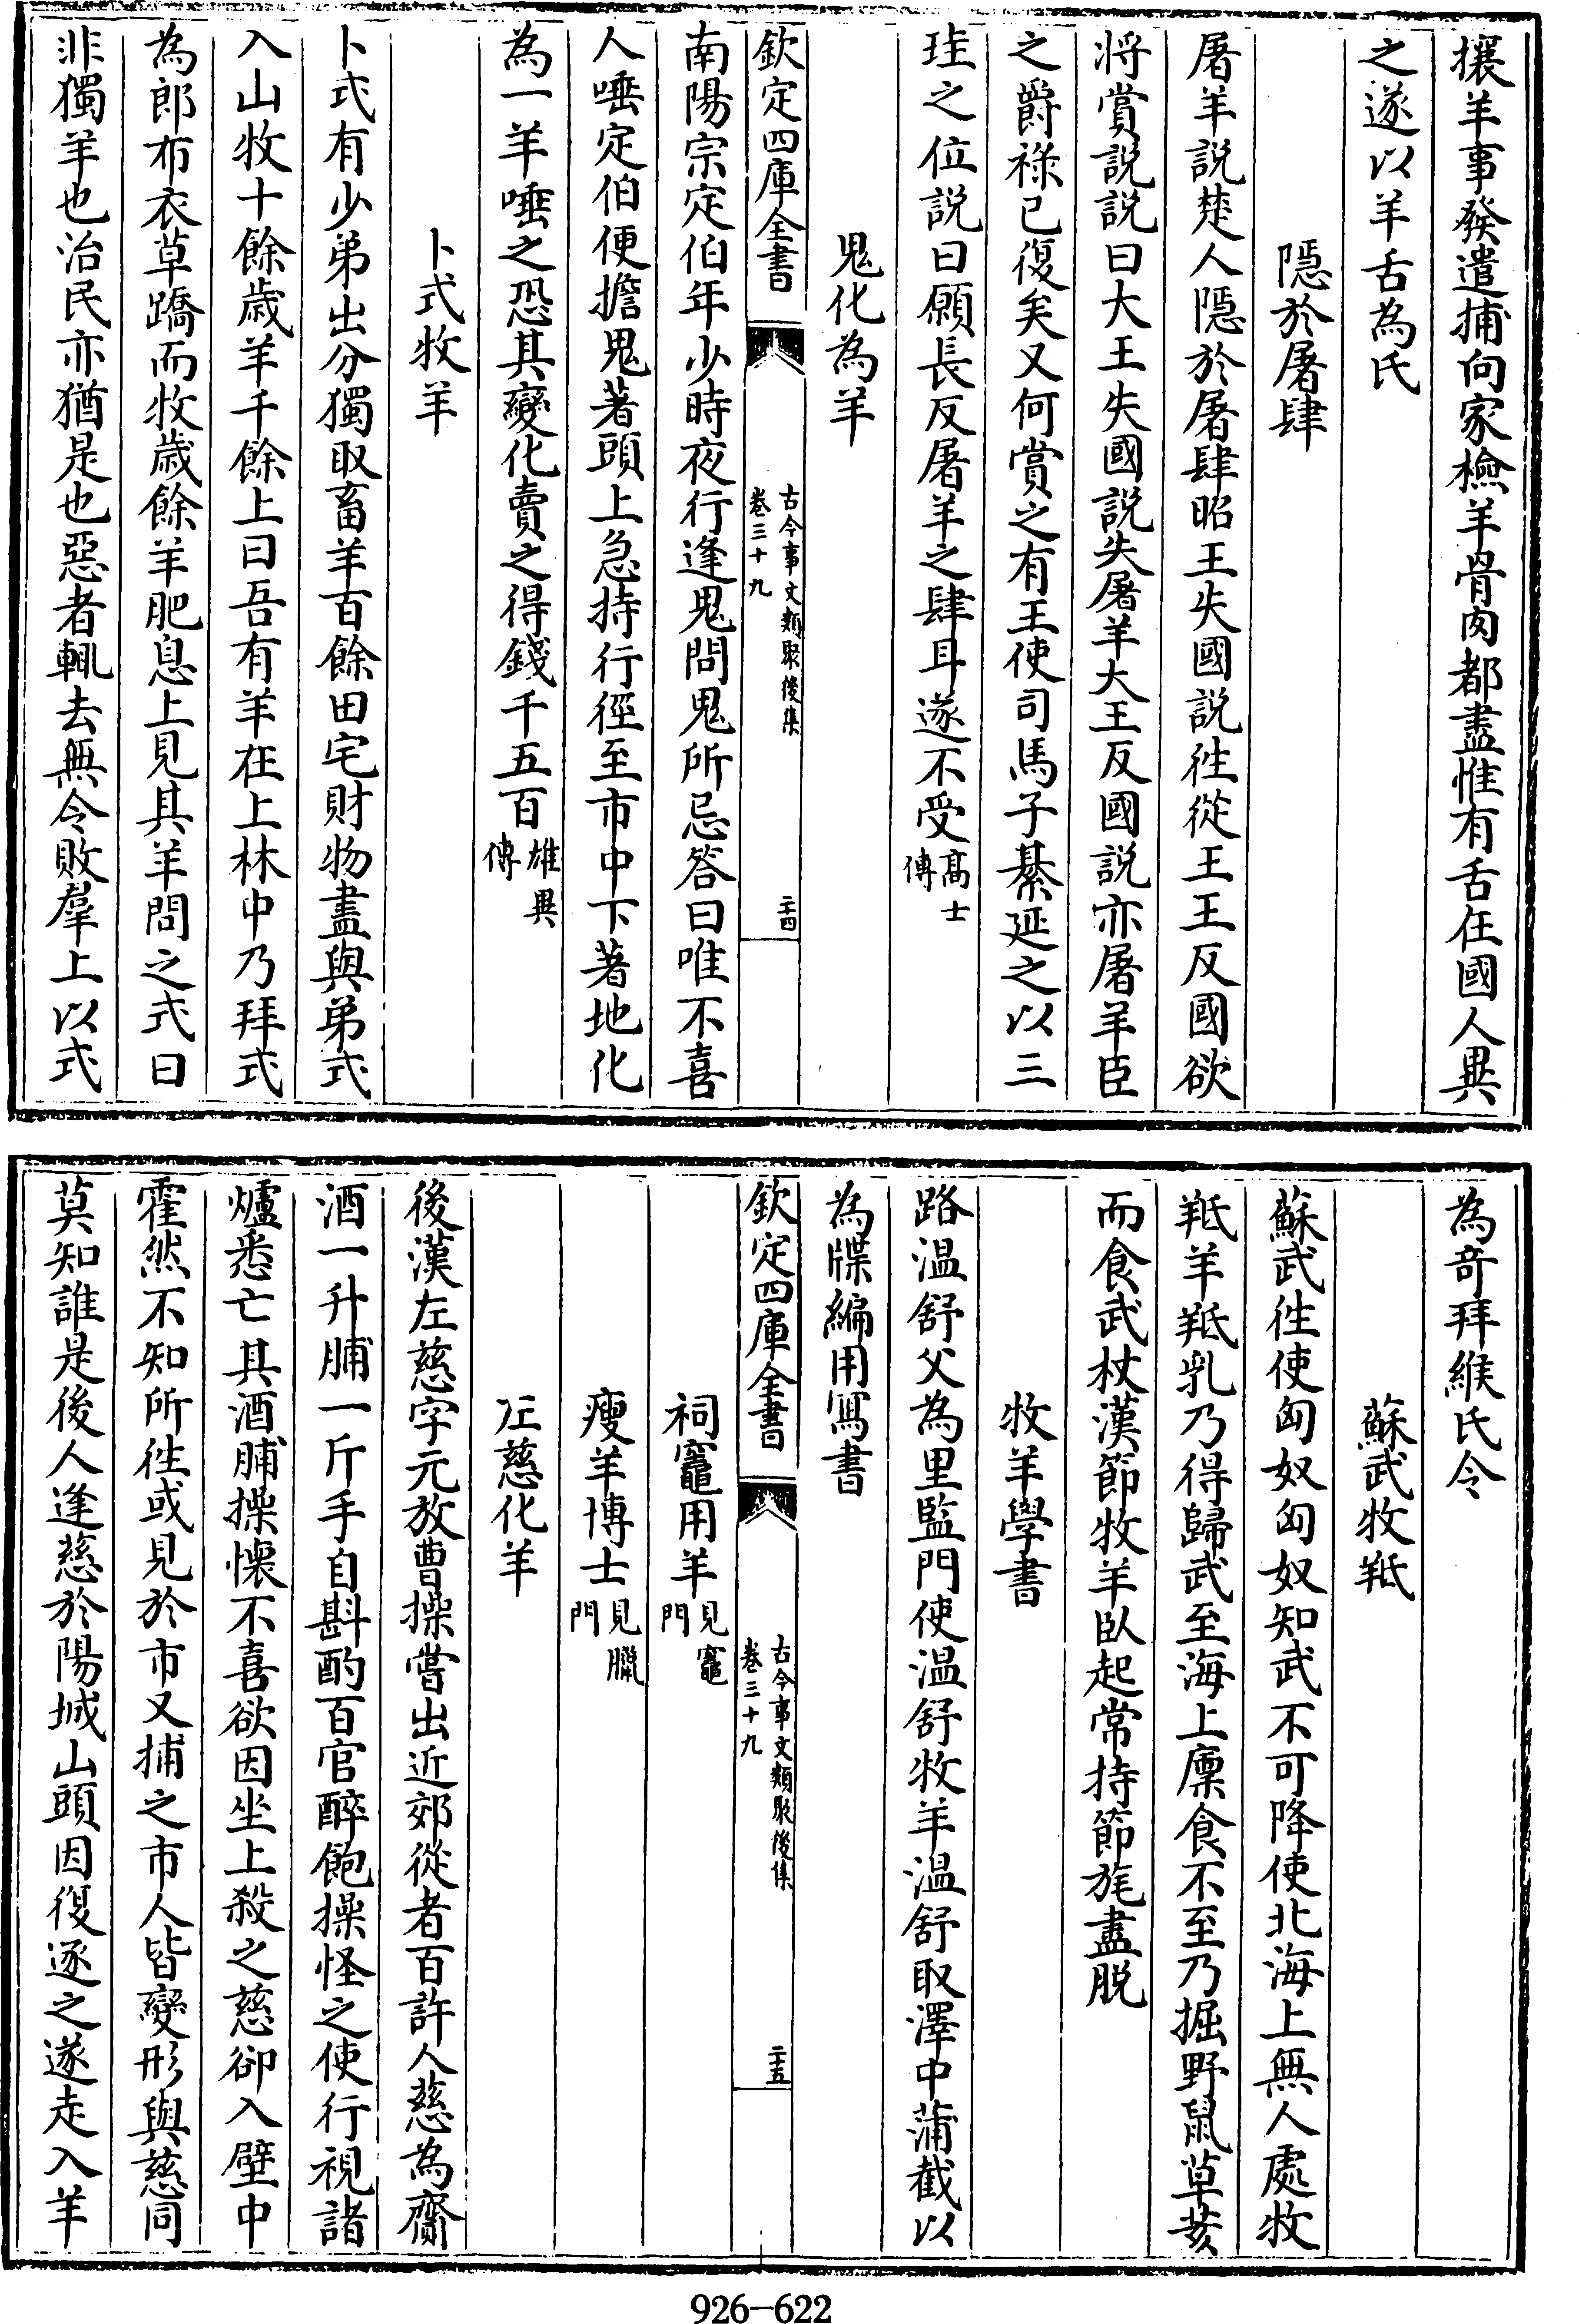 攘羊事發遣捕向家檢羊骨肉都盡惟有舌在國人異
之遂以羊舌為氏
隱於屠肆
屠羊說楚人隱於屠肆昭王失國說往從王王反國欲
將賞説説曰大王失國説失屠羊大王反國説亦屠羊臣
之爵祿已復矣又何賞之有王使司馬子綦延之以三
珪之位説曰願長反屠羊之肆耳遂不受高士傳
鬼化為羊
欽定四庫全書
古今事文類聚後集
卷三十九
二十四
南陽宗定伯年少時夜行逢鬼問鬼所忌答曰唯不喜
人唾定伯便擔鬼著頭上急持行徑至市中下著地化
為一羊唾之恐其變化賣之得錢千五百雄異傳
卜式牧羊
卜式有少弟出分獨取畜羊百餘田宅財物盡與弟式
入山牧十餘歲羊千餘上曰吾有羊在上林中乃拜式
為郎布衣草蹻而牧歲餘羊肥息上見其羊問之式曰
非獨羊也治民亦猶是也惡者輒去無令敗羣上以式
為奇拜緱氏令
蘇武牧羝
蘇武往使匈奴匈奴知武不可降使北海上無人處牧
羝羊羝乳乃得歸武至海上廩食不至乃掘野鼠草荄
而食武杖漢節牧羊臥起常持節旄盡脱
牧羊學書
路温舒父為里監門使温舒牧羊温舒取澤中蒲截以
為牒編用寫書
欽定四庫全書
古今事文類聚後集
卷三十九
二十五
祠竈用羊見竈門
瘦羊博士見臘門
左慈化羊
後漢左慈字元放曹操嘗出近郊從者百許人慈為齎
酒一升脯一斤手自斟酌百官醉飽操怪之使行視諸
爐悉亡其酒脯操懷不喜欲因坐上殺之慈卻入壁中
霍然不知所往或見於市又捕之市人皆變形與慈同
莫知誰是後人逢慈於陽城山頭因復逐之遂走入羊
926-622